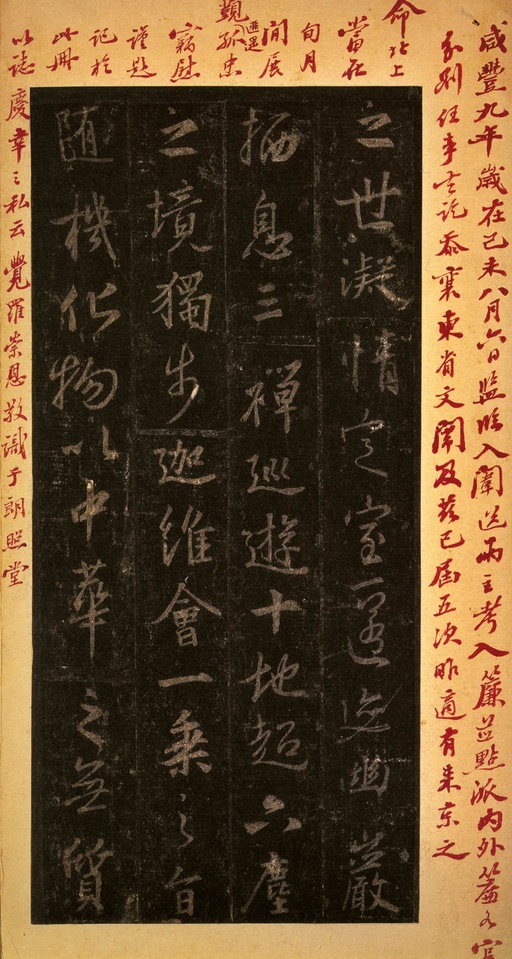 咸豐九年歲在己未八月六日監臨入闈送兩主考入簾並點派內外簾各官
分別任事去訖忝襄東省文闈及茲已屆五次昨適有來京之
命北上
當在
旬月
間展
覲匪遥孤忠
竊慰
謹題
記於
此冊
以誌慶幸之私云覺羅崇恩敬識于朗照堂
之世凝情定室匿迹幽巖
栖息三禪巡遊十地超六塵
之境獨步迦維會一乘之旨
隨機化物以中華之無質